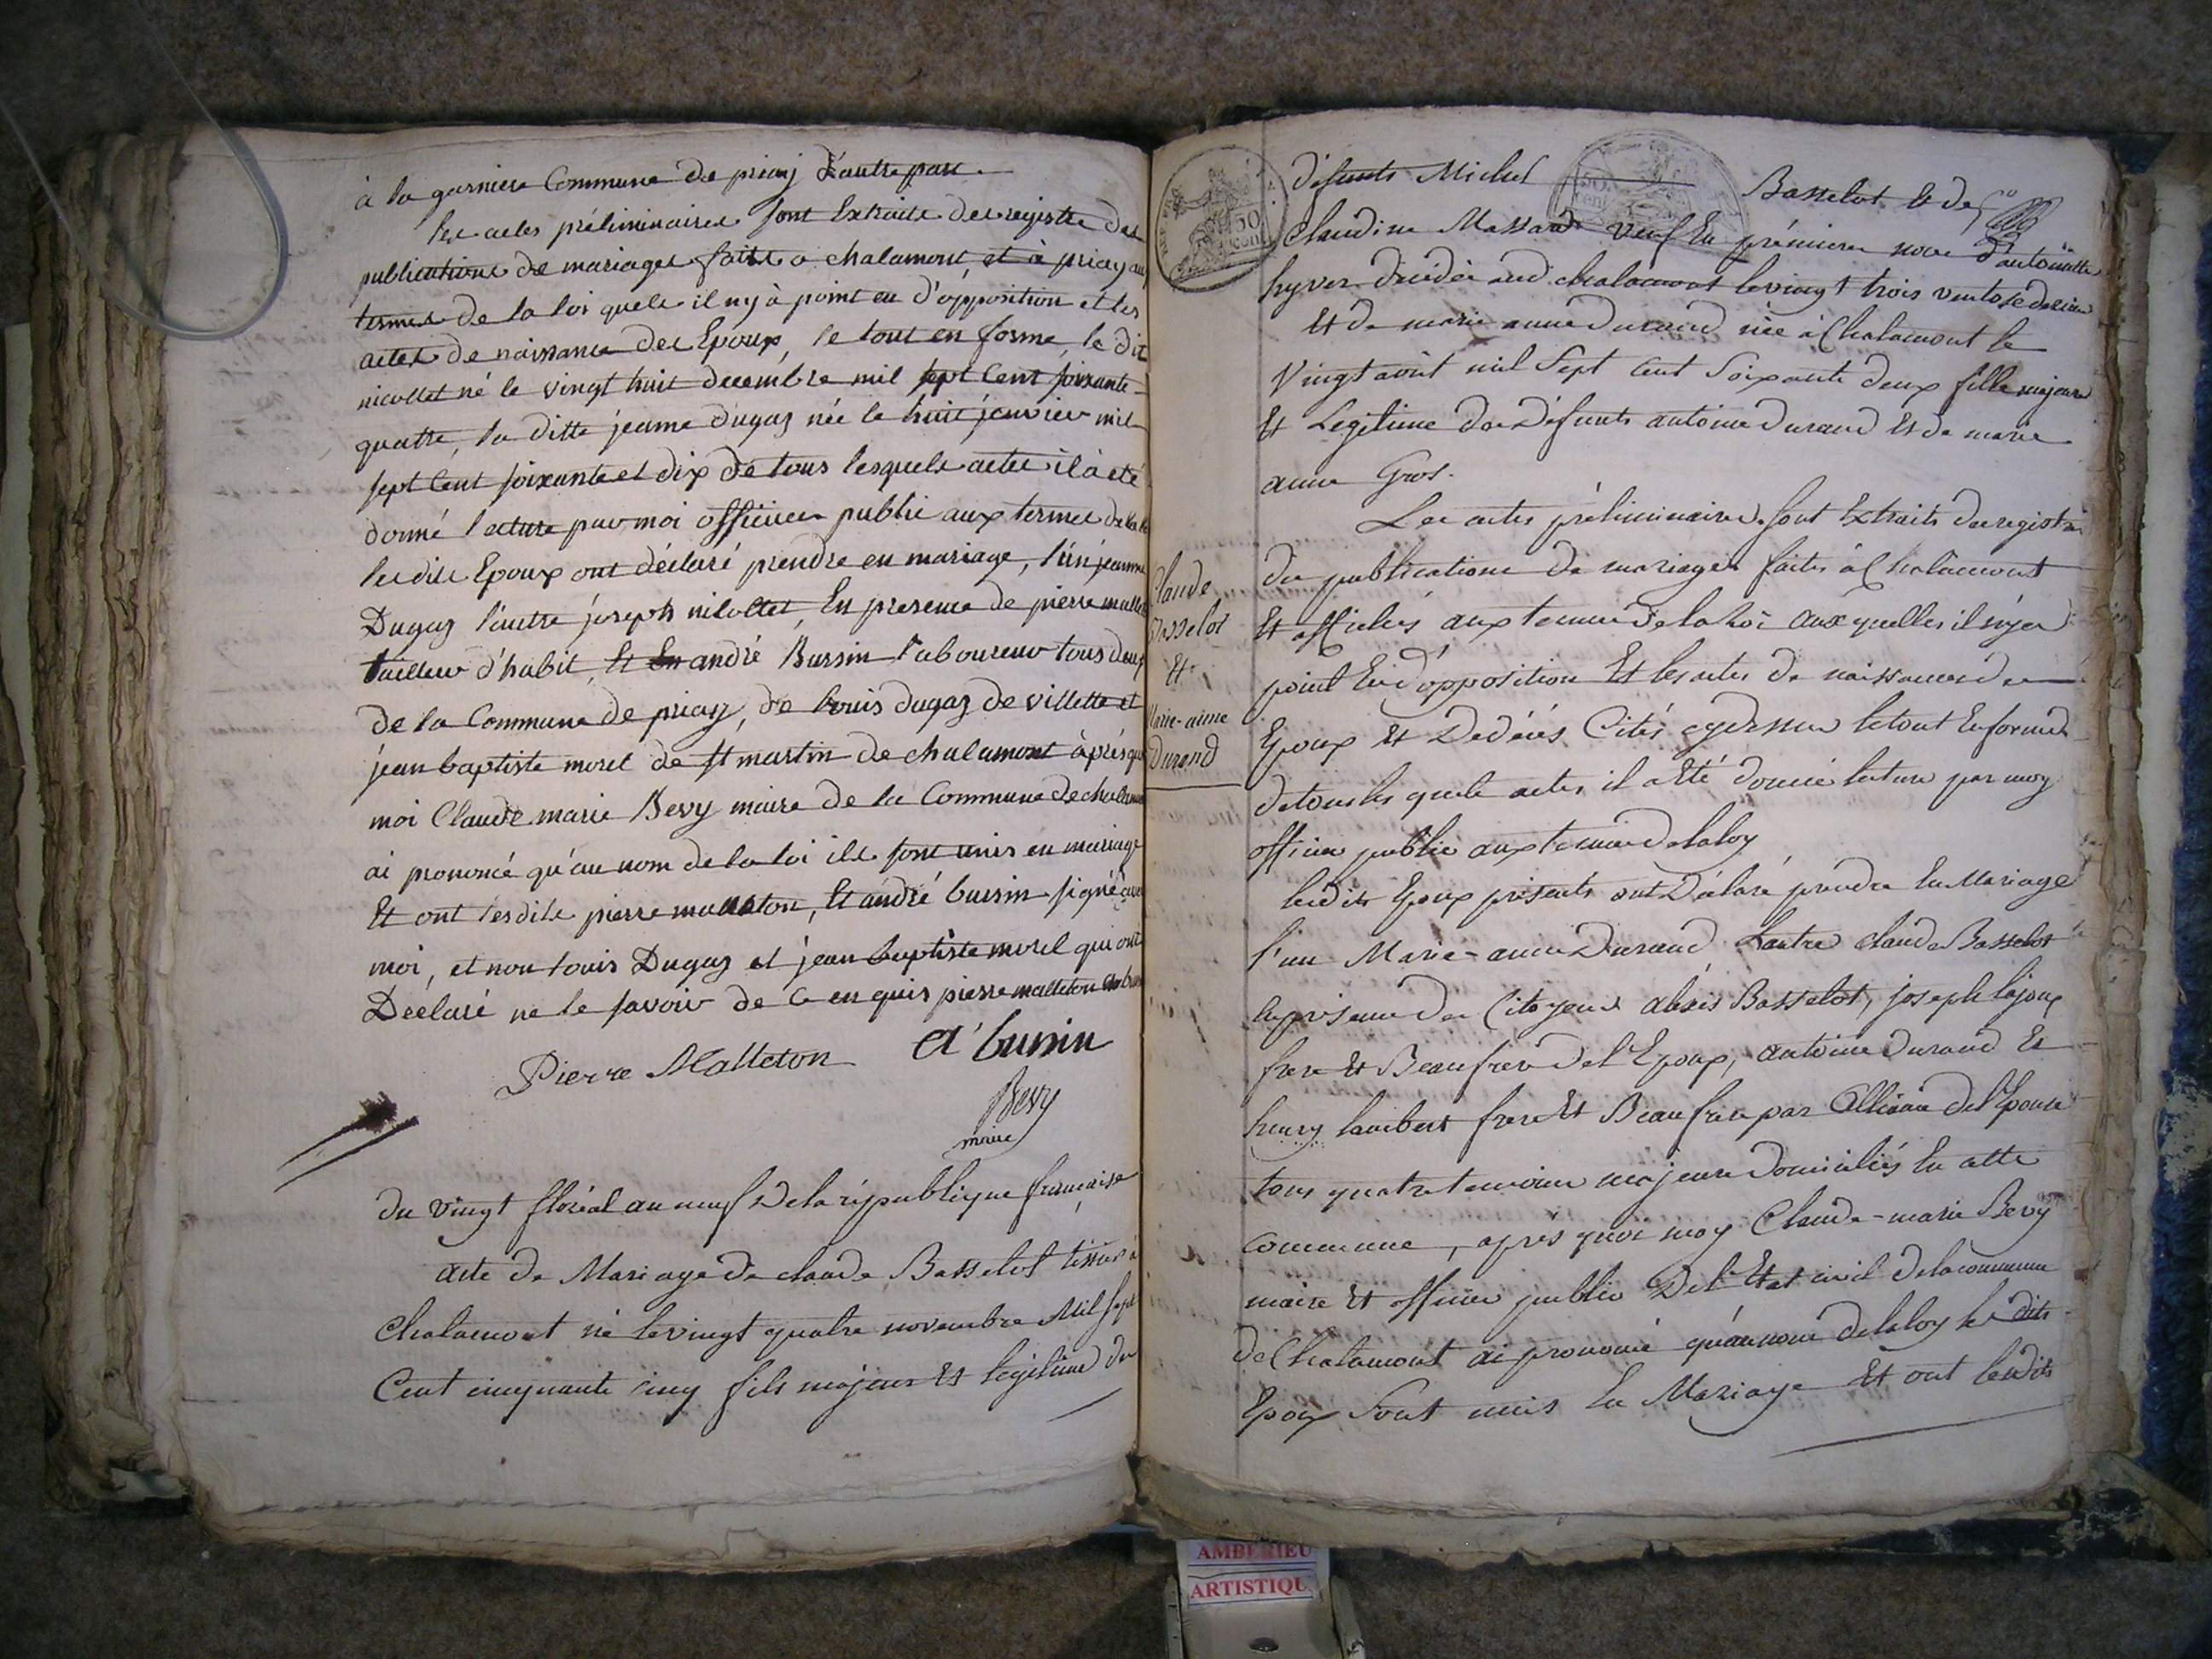 à la garniere Commune de priay d'autre part.
les actes préliminaires sont Extraits des registre des
publications de mariages faitte a chalamont, et à priay au
termes de la loi quels il ny à point eu d'opposition et les
actes de naissance des Epoux, le tout en forme, le dit
nicollet né le vingt huit decembre mil sept Cent soixante
quattre, la ditte jeanne dugaz née le huit janvier mil
sept Cent soixante et dix de tous lesquels actes il à été
donné lecture par moi officier public aux termes de la loi
lesdits Epoux ont déclaré prendre en mariage, l'un jeanne
Dugaz l'autre joseph nicollet, En presence de pierre malleton
tailleur d'habit, Et andré Bussin laboureur tous deux
de la Commune de priay, de louis dugaz de villette et
jean baptiste morel de st martin de chalamont àprés quoi
moi Claude marie Bevy maire de la Commune de chalamont
ai prononcé qu'au nom de la loi ils sont unis en mariage
Et ont lesdits pierre malleton, Et andré bussin signé avec
moi, et non louis Dugaz et jean baptiste morel qui ont
Declaré ne le savoir de ce enquis pierre malleton
Pierre Malleton a bussin
Bevy
maire
du vingt floréal an neuf de la république française
acte de Mariage de claude Basselot tissier à
Chalamont né le vingt quatre novembre Mil sept
Cent cinquante cinq fils majeur et legitime de
défunts Michel Basselot et de
Claudine Massard veuf En premiere noce d'antoinette
hyver decédée aud chalamont le vingt trois ventose dernier
Et de marie anne durand née à Chalamont le
Vingt août mil Sept Cent Soixante deux fille majeure
Et Legitime de Défunts antoine durand Et de marie
anne Gros.
Les actes préliminaires sont Extraits des registre
de publications de mariages faites à Chalamont
Et affichés aux termes de la Loi auxquelles il n'y a
point Eu d'opposition Et les actes de naissances des
Epoux Et Dedécés Cités cydessus le tout En forme
de tous les quels actes il a Eté donné lecture par moy
officier public aux termes de la loy
lesdits Epoux présents ont Déclaré prendre En Mariage
l'un Marie-anne Durand, Lautre claude Basselot
En présence des Citoyens alexis Basselot, joseph lajoux
frere Et Beaufrere de l'Epoux, antoine Durand Et
henry lambert frere Et Beau frere par alliance de l'Epouse
tous quatre temoins majeurs domiciliés En cette
commune, après quoi moy Claude-marie Bevy
maire Et officier public de l'Etat civil de la commune
de Chalamont ai prononcé qu'au nom de la loy les dits
Epoux Sont unis En Mariage Et ont lesdits
Claude
Basselot
Et
Marie-anne
Durand
AMBERIEU
ARTISTIQU